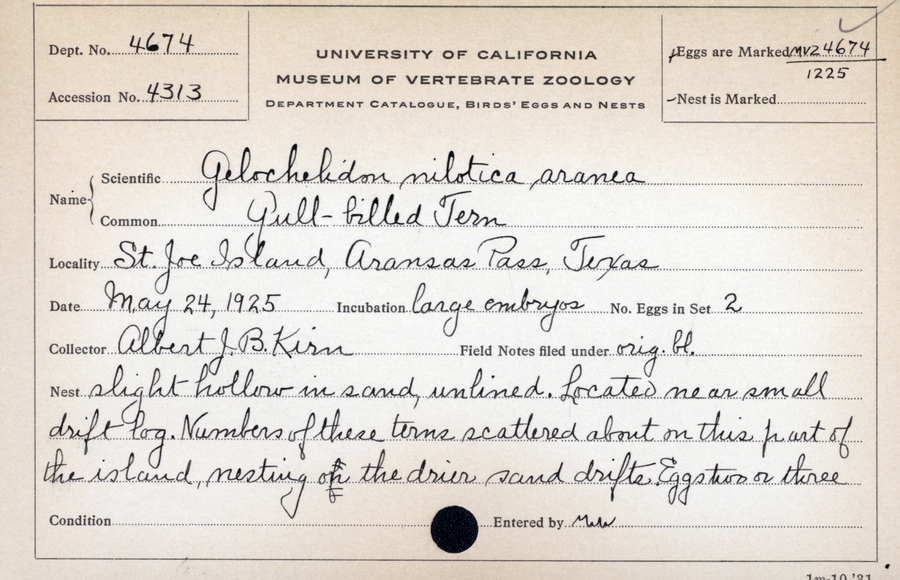 Dept. No. 4674
Accession No. 4313
UNIVERSITY OF CALIFORNIA
MUSEUM OF VERTEBRATE ZOOLOGY
DEPARTMENT CATALOGUE, BIRDS' EGGS AND NESTS
Eggs are Marked MVZ 4674
1225
Nest is Marked
Name
Scientific Gelochelidon nilotica aranea
Common Gull-billed Tern
Locality St. Joe Island, Aransas Pass, Texas
Date May 24, 1925 Incubation large embryos No. Eggs in Set 2
Collector Albert J. B. Kirn Field Notes filed under orig. bl.
Nest slight hollow in sand, unlined. Located near small
drift log. Numbers of these terns scattered about on this part of
the island, nesting on the drier sand drifts. Eggs two or three
Condition Entered by
1m-10,'31